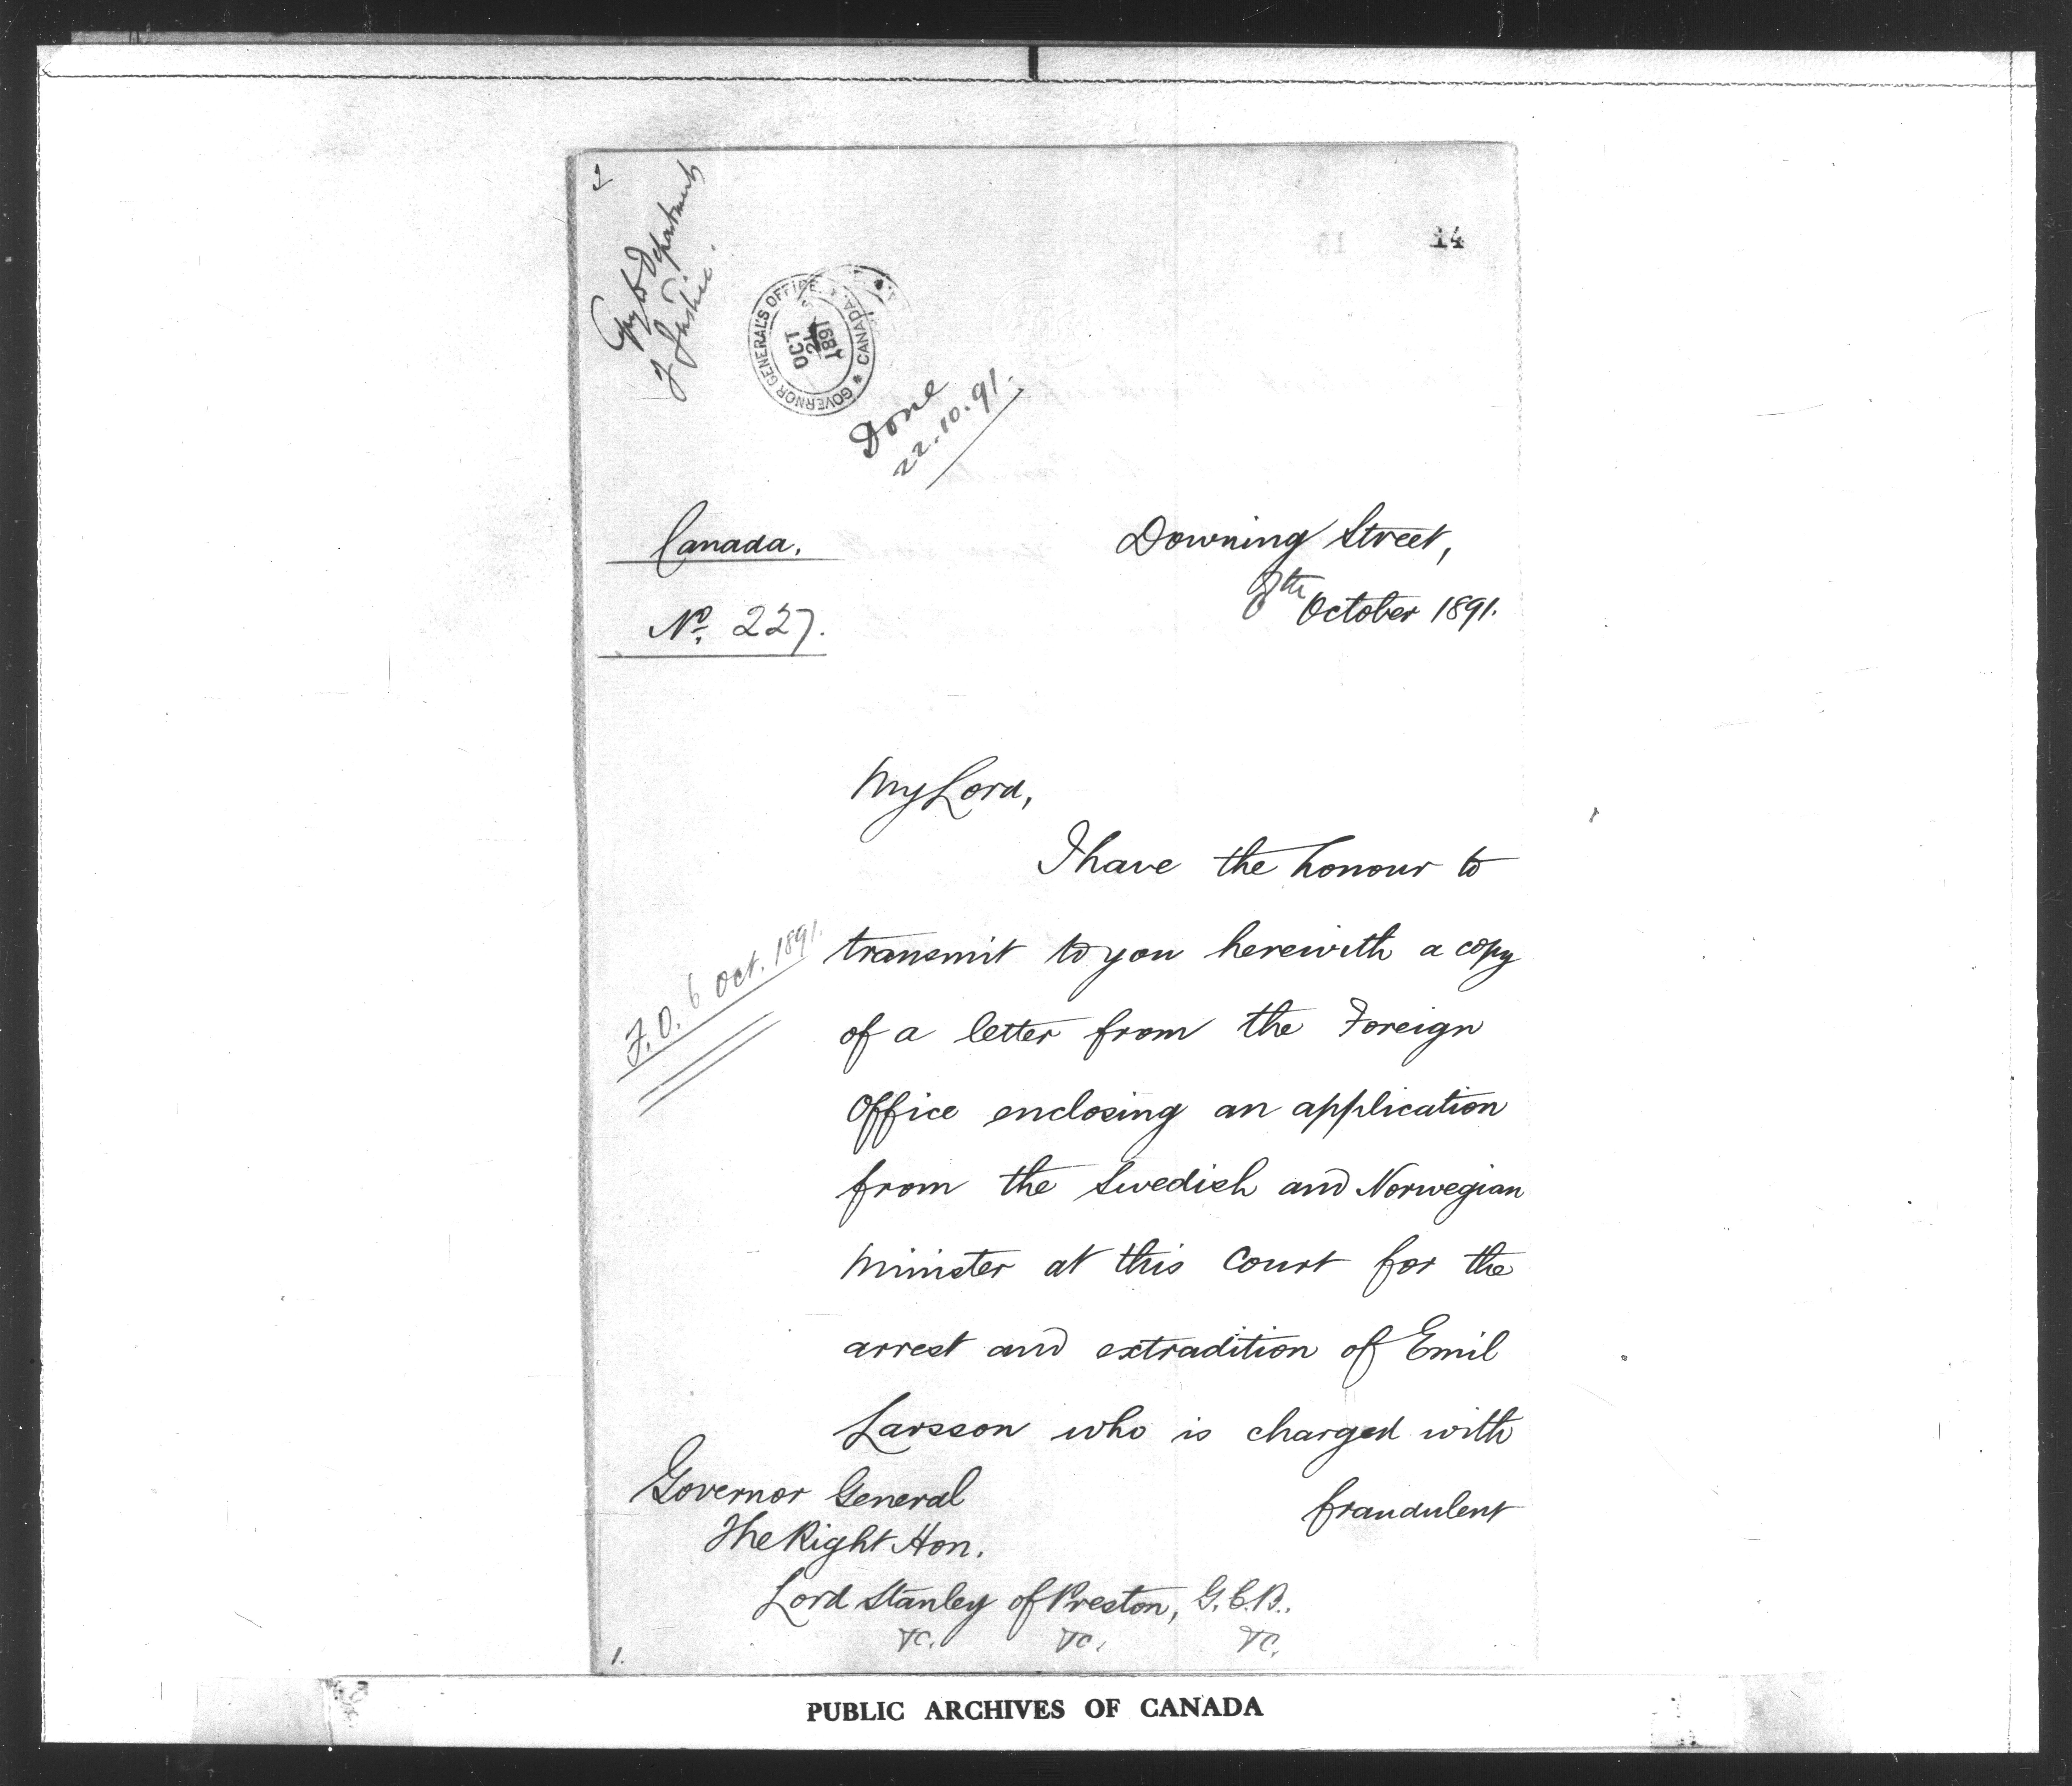 Copy to Department
of Justice.
14
GOVERNOR GENERAL'S OFFICE * CANADA *
OCT
21
1891
Done
22.10.91.
Canada.
Downing Street,
8th October 1891.
No. 227.
My Lord,
I have the honour to
transmit to you herewith a copy
F.O. 6 Oct. 1891.
of a letter from the Foreign
Office enclosing an application
from the Swedish and Norwegian
Minister at this Court for the
arrest and extradition of Emil
Larsson who is charged with
fraudulent
Governor General
The Right Hon.
Lord Stanley of Preston, G.C.B.,
&c. &c. &c.
1.
PUBLIC ARCHIVES OF CANADA